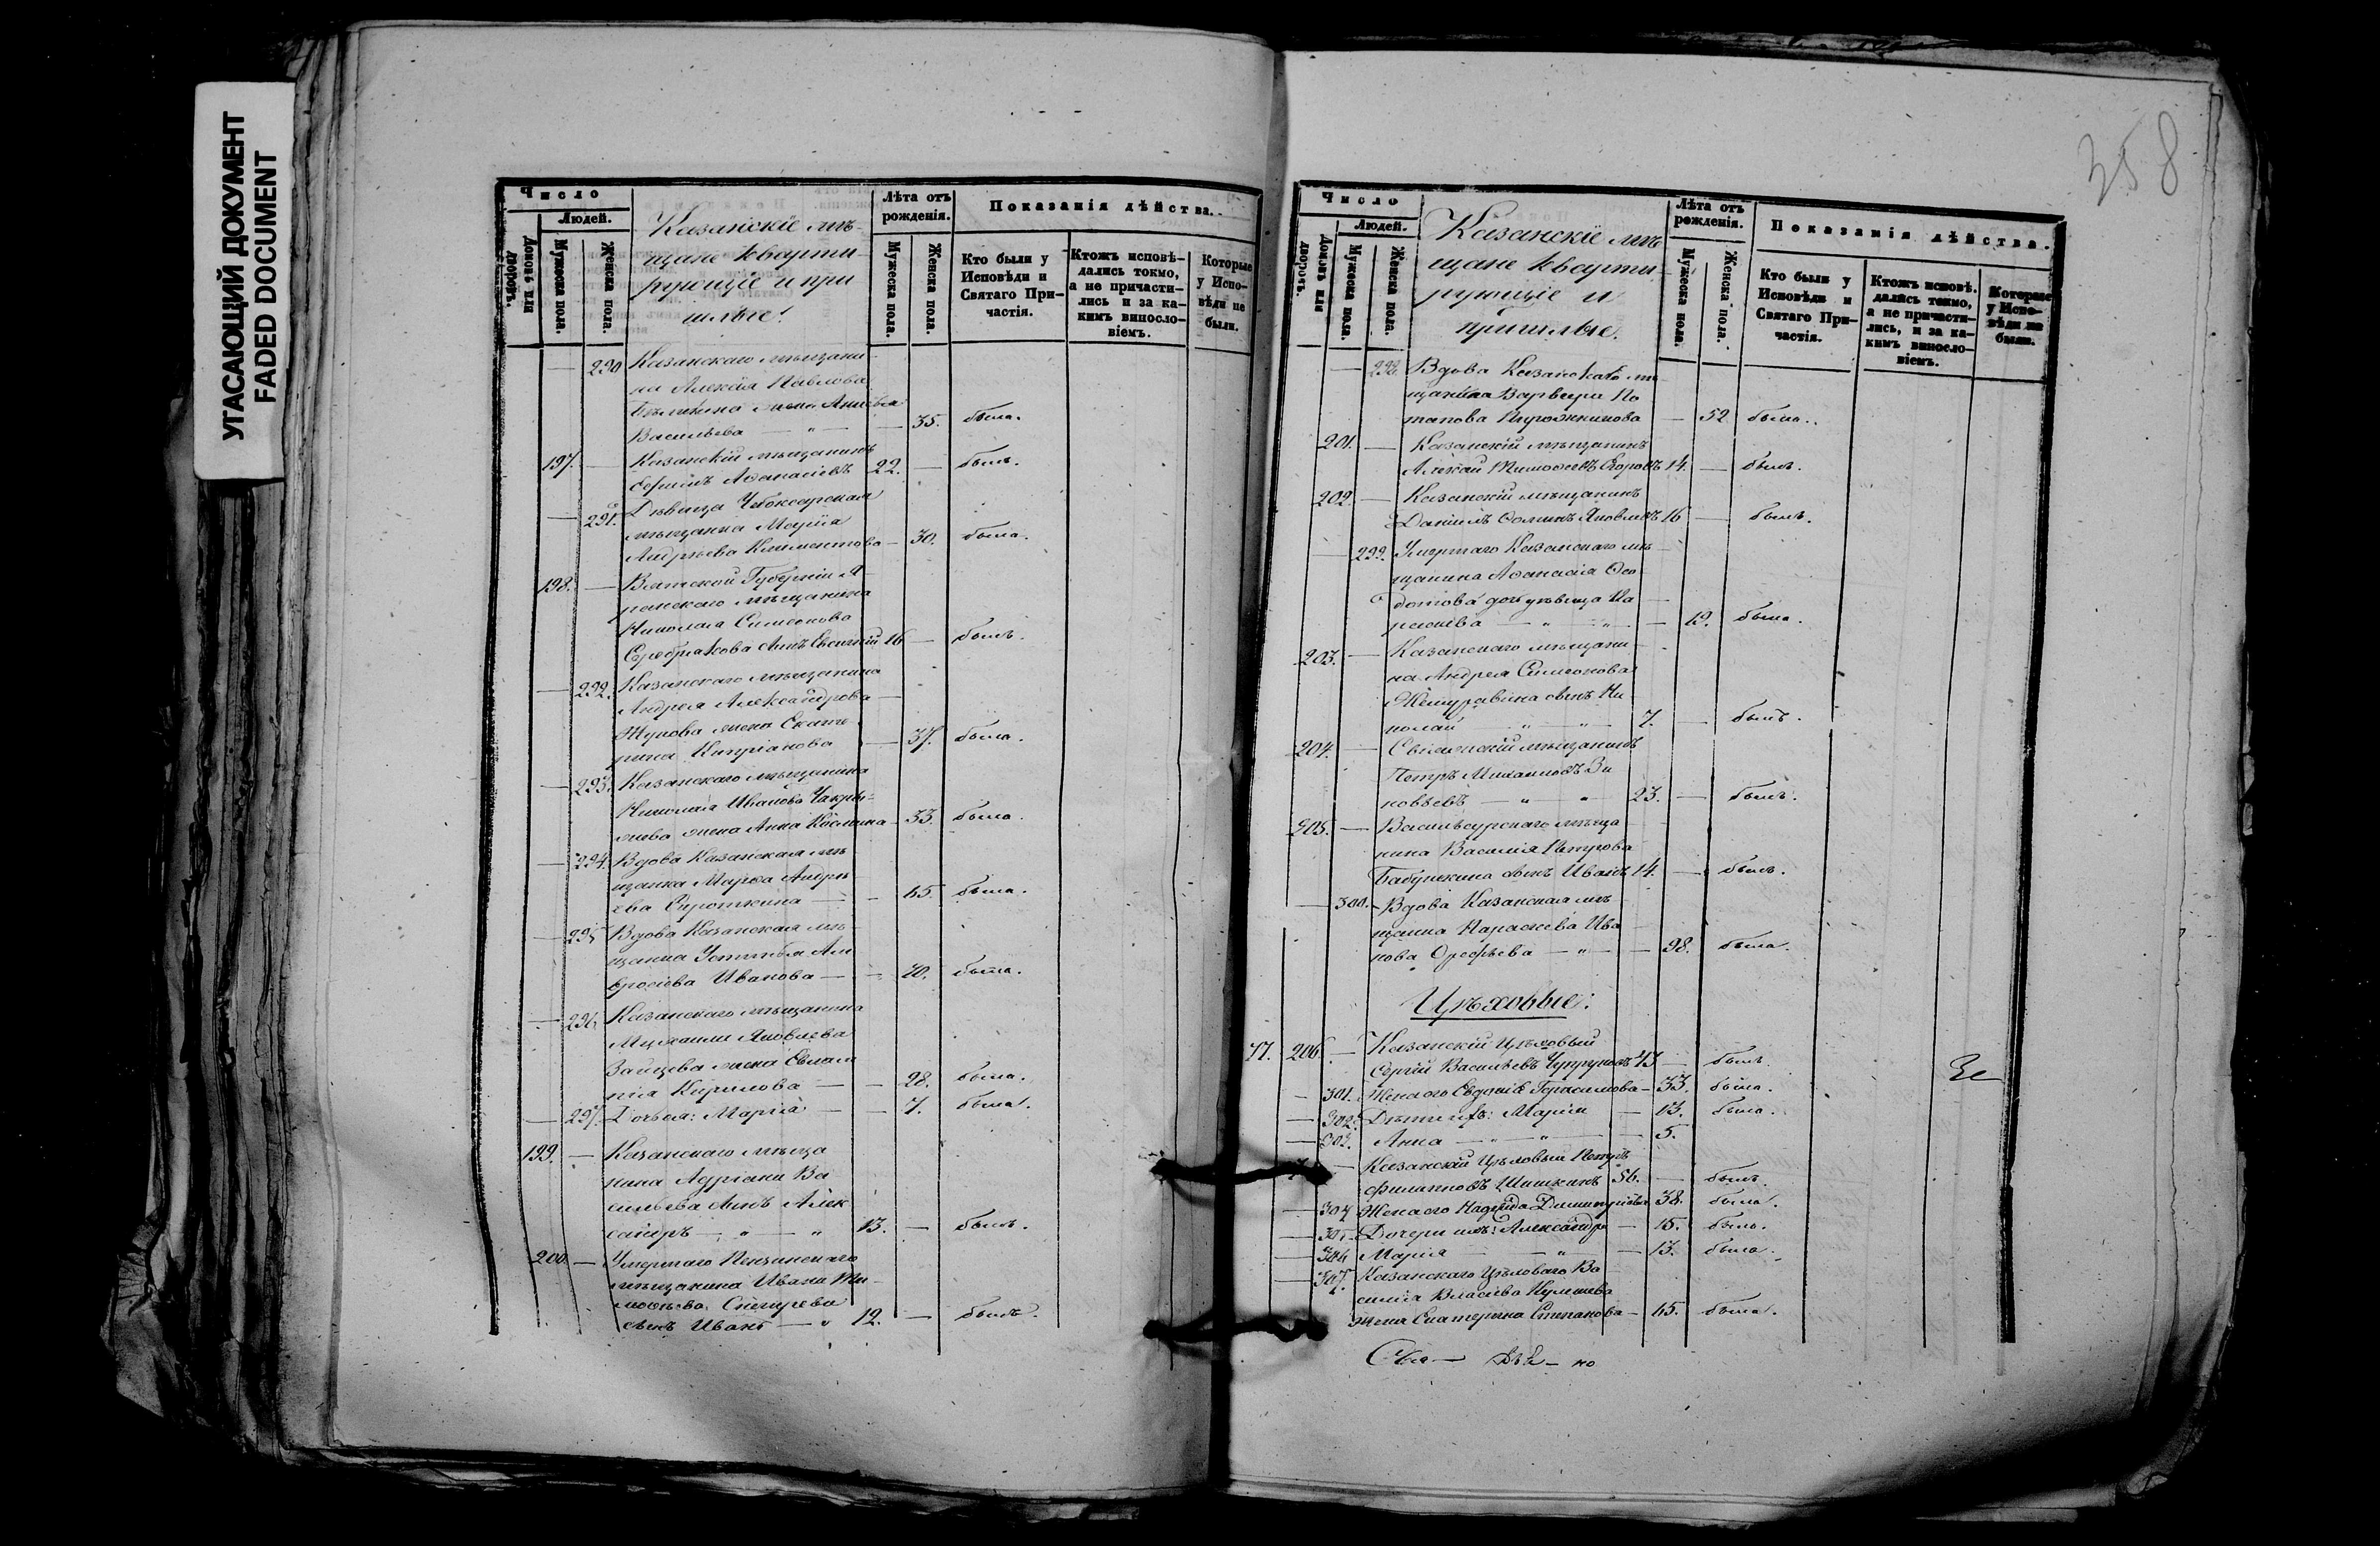 УГАСАЮЩИЙ ДОКУМЕНТ
FADED DOCUMENT
Число
Людей.
Домовъ или дворовъ.
Мужеска пола.
Женска пола.
Казанскіе мѣ-
щане кварти-
рующіе и при
шлые.
Лѣта отъ рожденія.
Мужеска пола.
Женска пола.
Показанія дѣйства.
Кто были у Исповѣди и Святаго При-частія.
Ктожъ исповѣ-дались токмо, а не причасти-лись и за ка-кимъ винословіемъ.
Которые у Испо-вѣди не были.
— 290 Казанскаго мѣщани-
на Алексія Павлова
жена
Васильева — " — — 35. была.
197. — Казанскій мѣщанинъ
Аѳанасіевъ 22. — былъ.
— 291. Дѣвица Чебоксарская
мѣщанка Марія
Андреева Климентова — 30. была.
198. — Вятской Губерніи Я-
ранскаго мѣщанина
Николая Симеонова
Серебрякова сынъ Евгеній 16 — былъ.
— 292. Казанскаго мѣщанина
Андрея Александрова
Жукова жена Екате-
рина Кипріанова — 37. была.
— 293. Казанскаго мѣщанина
Николая Иванова
жена Анна Косьмина — 33. была.
— 294. Вдова Казанская мѣ
щанка Марѳа Андре
ева Сироткина — — 65. была.
— 295 Вдова Казанская мѣ-
щанка Устинья Ам
вросіева Иванова — — 70. была.
— 296 Казанскаго мѣщанина
Михаила Яковлева
Зайцева жена Евлам
пія Кирилова — — 28. была.
— 297. Дочь ея: Марія — — 7. была.
199. — Казанскаго мѣща
нина Адріана Ва
сильева сынъ Алек
сандръ — " — " 13. — былъ.
200. — Умершаго Пензинскаго
мѣщанина Ивана Ти-
моѳеева Снегирева
сынъ Иванъ — " 12. — былъ.
358
Число
Людей.
Домовъ или дворовъ.
Мужеска пола.
Женска пола.
Казанскіе мѣ
щане кварти-
рующіе и
пришлые.
Лѣта отъ рожденія.
Мужеска пола.
Женска пола.
Показанія дѣйства.
Кто были у Исповѣди и Святаго При-частія.
Ктожъ исповѣ-дались токмо, а не причасти-лись, и за ка-кимъ винословіемъ.
Которые у Испо-вѣди не были.
— 298. Вдова Казанскаго мѣ-
щанина Варвара По
тапова Пирожникова — 52 была.
201. — Казанскій мѣщанинъ
Алексій Тимоѳеевъ Егоровъ 14. — былъ.
202. — Казанскій мѣщанинъ
Даніилъ Ѳоминъ Яковлевъ 16 — былъ.
— 299. Умершаго Казанскаго мѣ-
щанина Аѳанасія Ѳео
дотова дочь дѣвица Па
раскева — " — " — 19. была.
203. — Казанскаго мѣщани-
на Андрея Симеонова
сынъ Ни
колай — " — " — 7. — былъ.
204. — Свіяжскій мѣщанинъ
Петръ Михаиловъ Зи
новьевъ — " — " 23. — былъ.
205. — Васильсурскаго мѣща
нина Василія Петрова
Бабушкина сынъ Иванъ 14. — былъ.
— 300. Вдова Казанская мѣ-
щанка Параскева Ива
нова Орефьева — " — — 98. была.
Цѣховые:
77. 206. — Казанскій Цѣховый
Сергій Васильевъ Чупруновъ 43 — былъ.
— 301. Жена его Евдокія Герасимова — 33. была.
— 302. Дѣти ихъ: Марія — 13. была.
— 303. Анна — " — " — 5.
— Казанскій Цѣховый Петръ
Филипповъ Шишкинъ 56. — былъ.
— 304 Жена его Надежда Димитріева 38. была.
— 305. Дочери ихъ: Александра — 15. была.
— 306 Марія — " — 13. была.
— 307. Казанскаго Цѣховаго Ва
силія Власіева Кулешева
жена Екатерина Степанова — 65. была.